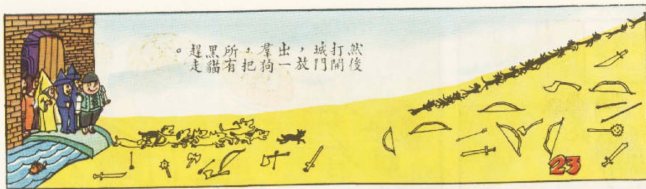 然後
打開
城門
，放
出一
羣狗
，把
所有
黑貓
趕走
。
23